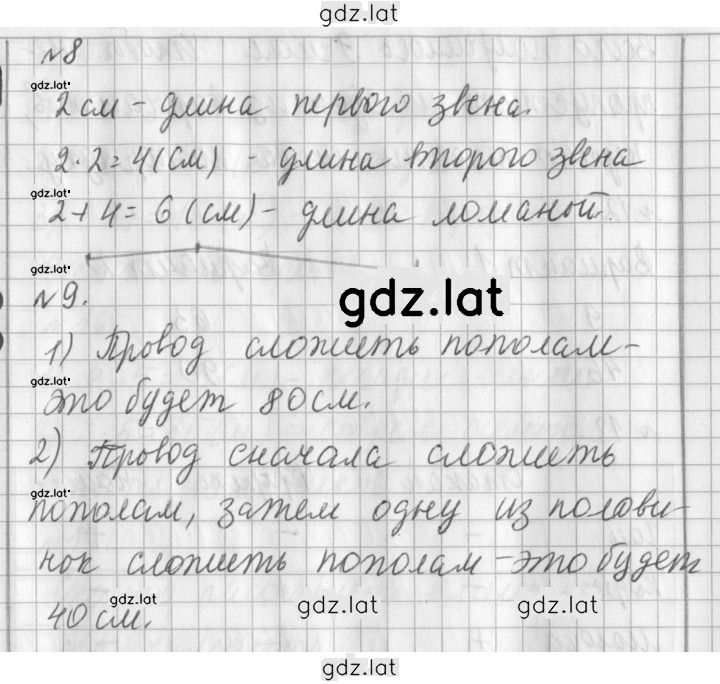 gdz.lat
№8
gdz.lat
2 см - длина первого звена.
2·2=4(см) - длина второго звена
gdz.lat
2+4=6(см) - длина ломаной.
gdz.lat
gdz.lat
№9.
1) Провод сложить пополам-
gdz.lat
это будет 80см.
2) Провод сначала сложить
gdz.lat
пополам, затем одну из полови-
нок сложить пополам-это будет
gdz.lat gdz.lat gdz.lat
40см.
gdz.lat